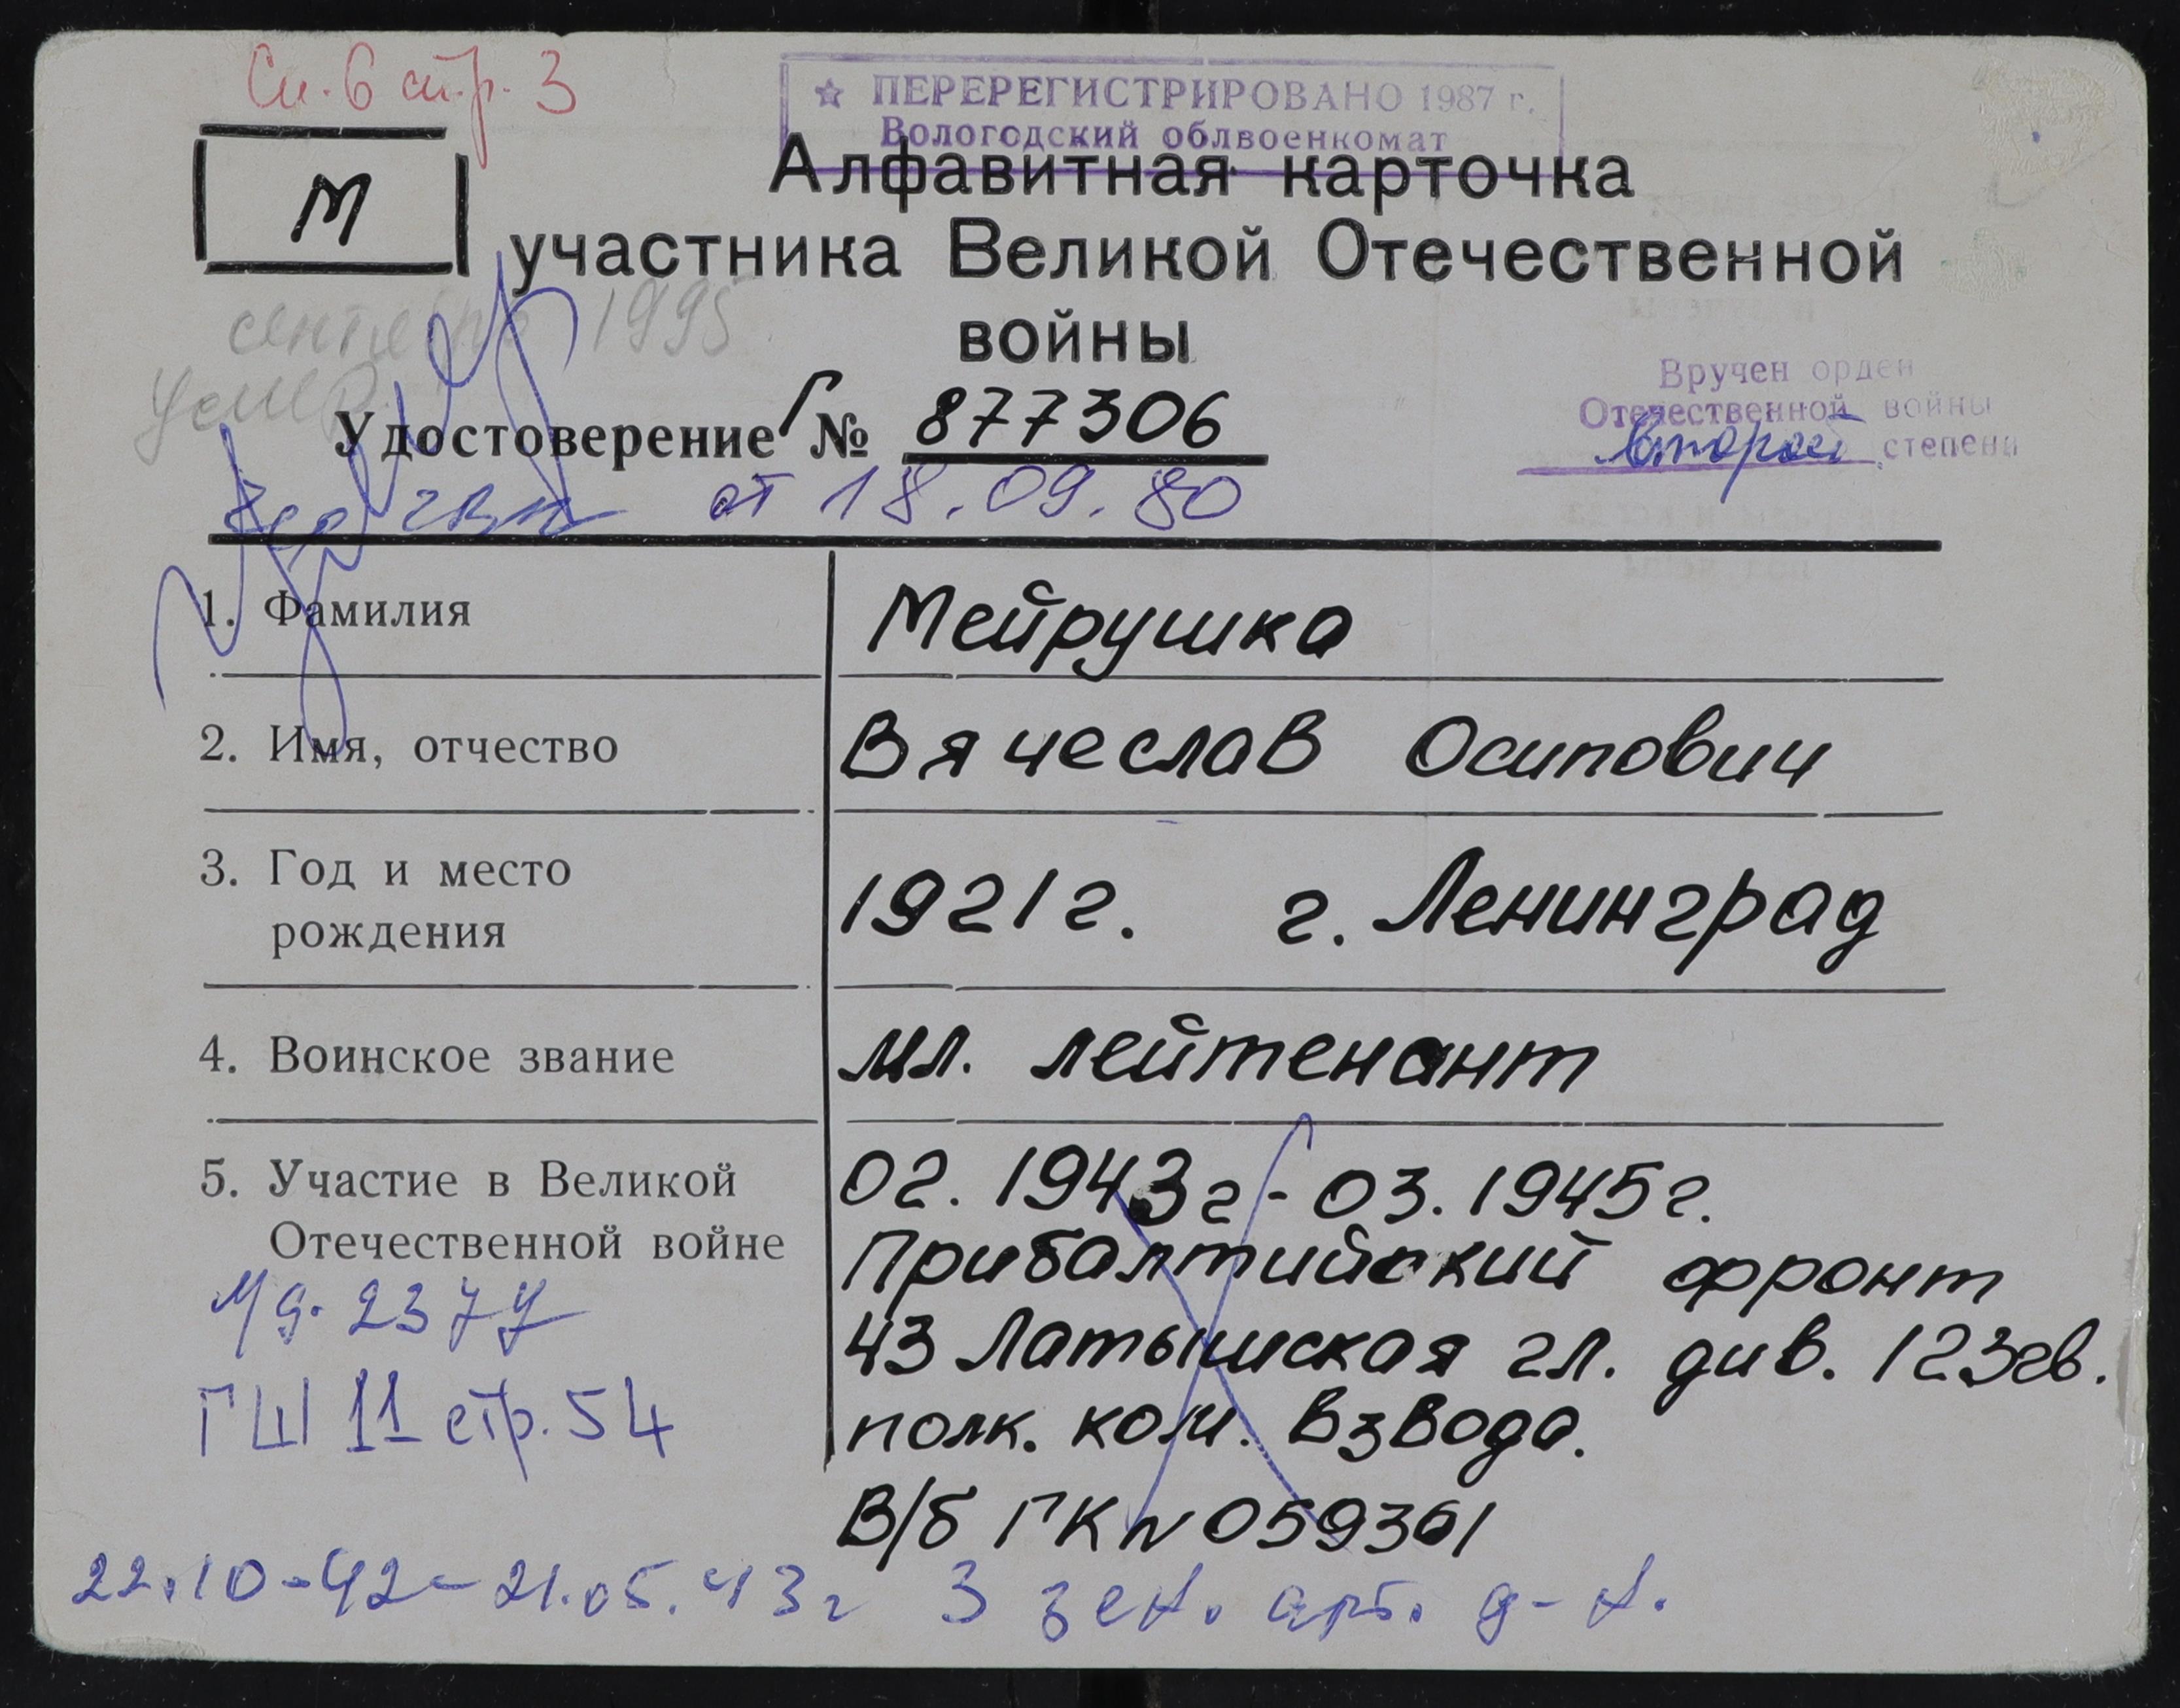 Сп. 6 стр. 3
☆ ПЕРЕРЕГИСТРИРОВАНО 1987 г.
Вологодский облвоенкомат
М
Алфавитная карточка
участника Великой Отечественной
войны
сентябрь 1995
умер
Удостоверение Г № 877306
от 18.09.80
Вручен орден
Отечественной войны
второй степени
1. Фамилия Мейрушка
2. Имя, отчество Вячеслав Осипович
3. Год и место
рождения 1921г. г. Ленинград
4. Воинское звание мл. лейтенант
5. Участие в Великой
Отечественной войне
02. 1943г - 03. 1945г.
Прибалтийский фронт
43 Латышская гл. див. 123гв.
полк. ком. взвода.
В/б ГК № 059361
ГШ 11 стр. 54
22.10-42-21.05.43г 3 зен. арт. д-н.